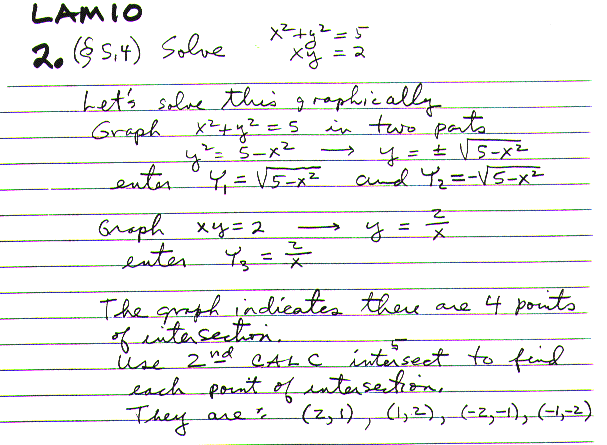 LAM10
2. (§ 5,4) Solve x²+y² = 5
xy = 2
Let's solve this graphically
Graph x²+y² = 5 in two parts
y² = 5-x² → y = ± √5-x²
enter Y₁ = √5-x² and Y₂ = -√5-x²
Graph xy = 2 → y = 2/x
enter Y₃ = 2/x
The graph indicates there are 4 points
of intersection.
Use 2nd CALC 5 intersect to find
each point of intersection.
They are: (2,1), (1,2), (-2,-1), (-1,-2)